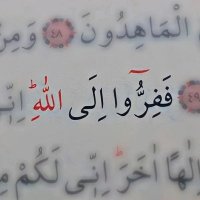 الْمَاهِدُونَ ﴿٤٨﴾ وَمِنْ
﴿٤٩﴾ فَفِرُّٓوا إِلَى اللّٰهِ
إِلٰهًا اٰخَرَ إِنِّى لَكُمْ